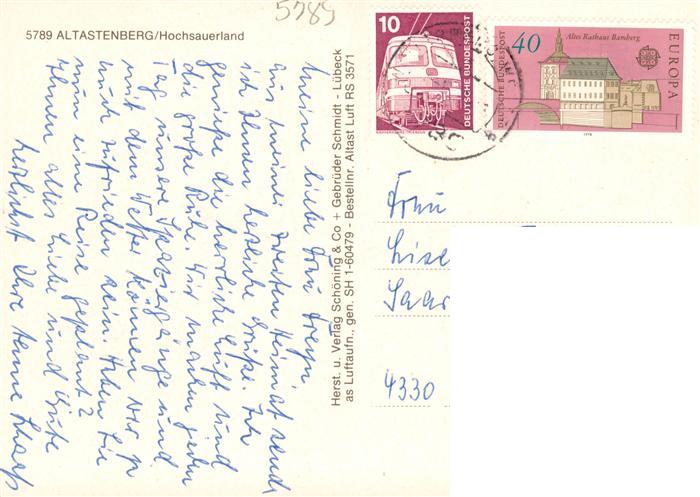 5789
5789 ALTASTENBERG/Hochsauerland
Meine liebe Frau Freyn,
aus meiner zweiten Heimat sende
ich Ihnen herzliche Grüße. Ich
genieße die herrliche Luft und
die große Ruhe. Wir machen jeden
Tag unsere Spaziergänge und
mit dem Wetter können wir ja
auch zufrieden sein. Haben Sie
nun eine Reise geplant?
Ihnen alles Liebe und Gute
herzlichst Ihre Hanne
Herst. u. Verlag Schöning & Co + Gebrüder Schmidt - Lübeck
as Luftaufn., gen. SH 1-60479 - Bestellnr. Altast Luft RS 3571
10
DEUTSCHE BUNDESPOST
40
Altes Rathaus Bamberg
DEUTSCHE BUNDESPOST
EUROPA
1978
Frau
Lise
Saar
4330